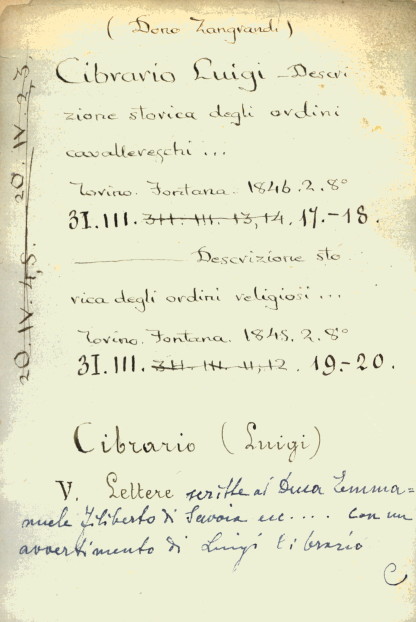 ( Dono Zangrandi )
Cibrario Luigi - Descri
zione storica degli ordini
cavallereschi ...
Torino. Fontana. 1846. 2. 8°
31. III. 311. III. 13, 14. 17.-18.
Descrizione sto
rica degli ordini religiosi ...
Torino. Fontana. 1845. 2. 8°
31. III. 311. III. 11, 12. 19.-20.
20. IV. 4,5. 20. IV. 2,3.
Cibrario (Luigi)
V. Lettere scritte al Duca Emma=
nuele Filiberto di Savoia ecc.... con un
avvertimento di Luigi Cibrario
C